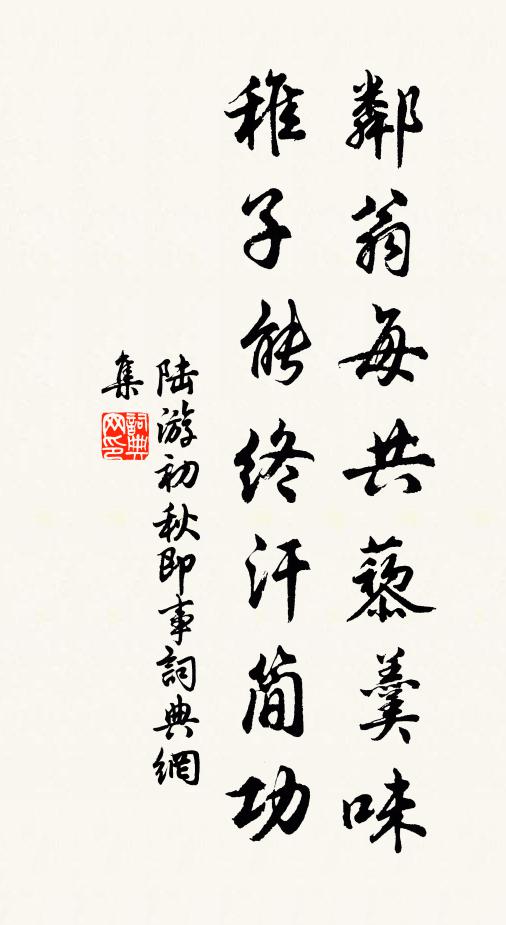 鄰翁每共藜羹味
稚子能終汗簡功
陸游初秋即事詞典網
集
詞典
网印